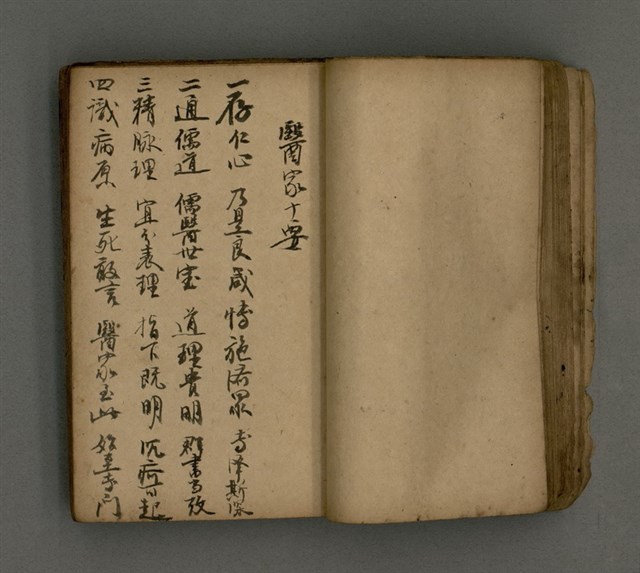 醫家十要
一存仁心 乃是良箴 博施濟眾 惠澤斯深
二通儒道 儒醫世宝 道理貴明 群書當攷
三精脉理 宜分表理 指下既明 沉疴可起
四識病原 生死敢言 醫家至此 始至專門